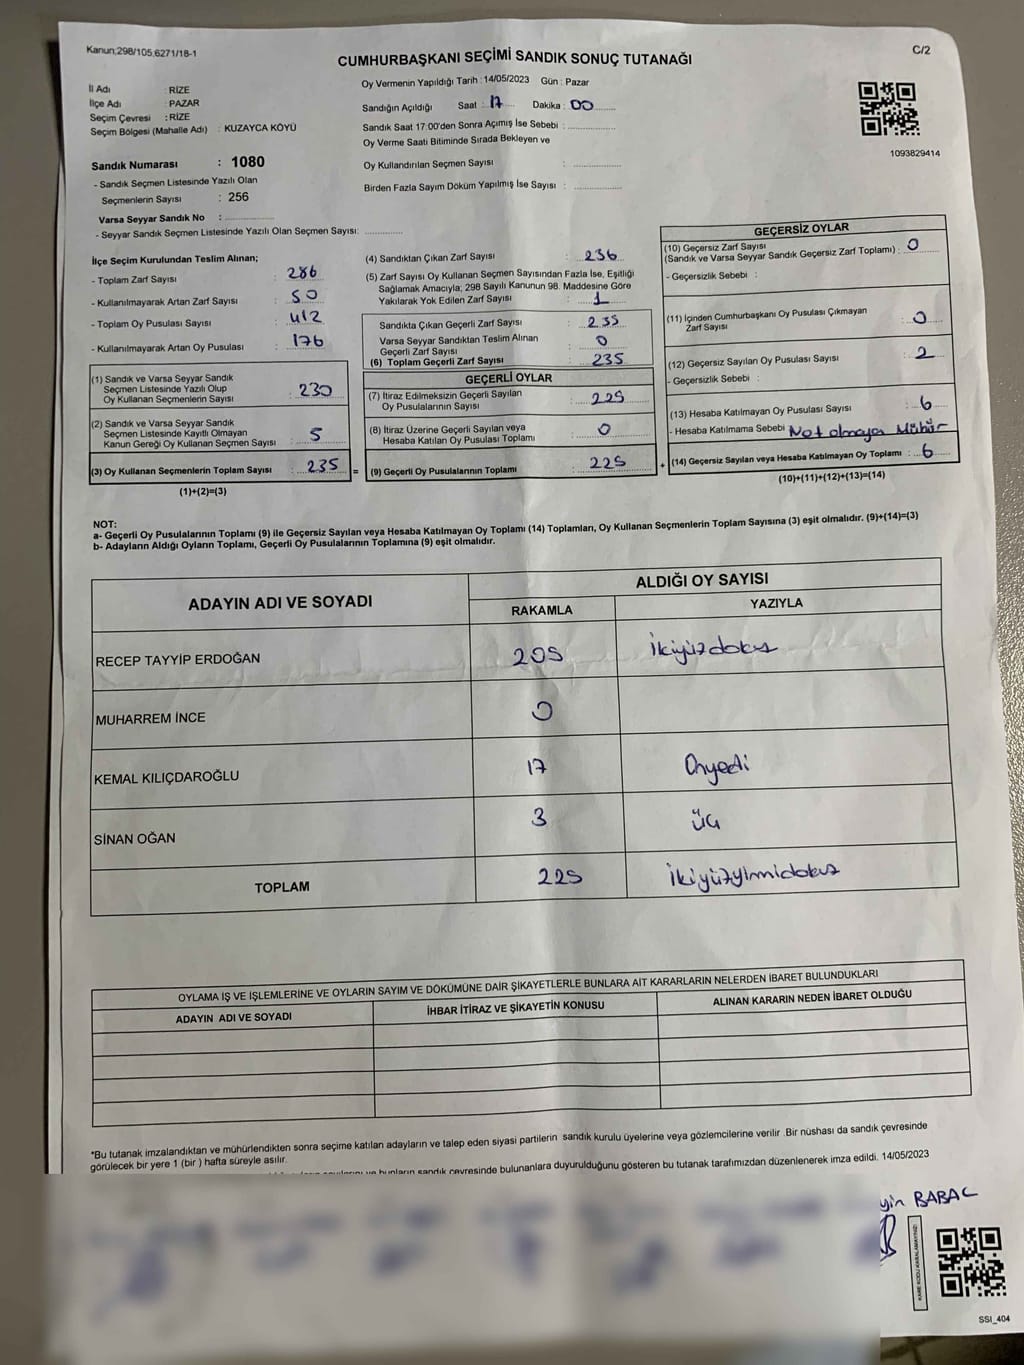 Kanun;298/105;6271/18-1
C/2
CUMHURBAŞKANI SEÇİMİ SANDIK SONUÇ TUTANAĞI
İl Adı : RİZE
İlçe Adı : PAZAR
Seçim Çevresi : RİZE
Seçim Bölgesi (Mahalle Adı) : KUZAYCA KÖYÜ
Sandık Numarası : 1080
- Sandık Seçmen Listesinde Yazılı Olan
Seçmenlerin Sayısı : 256
Varsa Seyyar Sandık No :
- Seyyar Sandık Seçmen Listesinde Yazılı Olan Seçmen Sayısı:
Oy Vermenin Yapıldığı Tarih : 14/05/2023 Gün : Pazar
Sandığın Açıldığı Saat : 17 Dakika : 00
Sandık Saat 17:00'den Sonra Açımış İse Sebebi :
Oy Verme Saati Bitiminde Sırada Bekleyen ve
Oy Kullandırılan Seçmen Sayısı :
Birden Fazla Sayım Döküm Yapılmış İse Sayısı :
1093829414
İlçe Seçim Kurulundan Teslim Alınan;
- Toplam Zarf Sayısı : 286
- Kullanılmayarak Artan Zarf Sayısı : 50
- Toplam Oy Pusulası Sayısı : 412
- Kullanılmayarak Artan Oy Pusulası : 176
(1) Sandık ve Varsa Seyyar Sandık
Seçmen Listesinde Yazılı Olup
Oy Kullanan Seçmenlerin Sayısı : 230
(2) Sandık ve Varsa Seyyar Sandık
Seçmen Listesinde Kayıtlı Olmayan
Kanun Gereği Oy Kullanan Seçmen Sayısı : 5
(3) Oy Kullanan Seçmenlerin Toplam Sayısı : 235 =
(1)+(2)=(3)
(4) Sandıktan Çıkan Zarf Sayısı : 236
(5) Zarf Sayısı Oy Kullanan Seçmen Sayısından Fazla İse, Eşitliği
Sağlamak Amacıyla; 298 Sayılı Kanunun 98. Maddesine Göre
Yakılarak Yok Edilen Zarf Sayısı : 1
Sandıkta Çıkan Geçerli Zarf Sayısı : 235
Varsa Seyyar Sandıktan Teslim Alınan
Geçerli Zarf Sayısı : 0
(6) Toplam Geçerli Zarf Sayısı : 235
GEÇERLİ OYLAR
(7) İtiraz Edilmeksizin Geçerli Sayılan
Oy Pusulalarının Sayısı : 229
(8) İtiraz Üzerine Geçerli Sayılan veya
Hesaba Katılan Oy Pusulası Toplamı : 0
(9) Geçerli Oy Pusulalarının Toplamı : 229 +
GEÇERSİZ OYLAR
(10) Geçersiz Zarf Sayısı
(Sandık ve Varsa Seyyar Sandık Geçersiz Zarf Toplamı) : 0
- Geçersizlik Sebebi :
(11) İçinden Cumhurbaşkanı Oy Pusulası Çıkmayan
Zarf Sayısı : 0
(12) Geçersiz Sayılan Oy Pusulası Sayısı : 2
- Geçersizlik Sebebi :
(13) Hesaba Katılmayan Oy Pusulası Sayısı : 6
- Hesaba Katılmama Sebebi Mühür
(14) Geçersiz Sayılan veya Hesaba Katılmayan Oy Toplamı : 6
(10)+(11)+(12)+(13)=(14)
NOT:
a- Geçerli Oy Pusulalarının Toplamı (9) ile Geçersiz Sayılan veya Hesaba Katılmayan Oy Toplamı (14) Toplamları, Oy Kullanan Seçmenlerin Toplam Sayısına (3) eşit olmalıdır. (9)+(14)=(3)
b- Adayların Aldığı Oyların Toplamı, Geçerli Oy Pusulalarının Toplamına (9) eşit olmalıdır.
ADAYIN ADI VE SOYADI
ALDIĞI OY SAYISI
RAKAMLA YAZIYLA
RECEP TAYYİP ERDOĞAN 209 ikiyüzdokuz
MUHARREM İNCE 0
KEMAL KILIÇDAROĞLU 17 Onyedi
SİNAN OĞAN 3 üç
TOPLAM 229 ikiyüzyirmidokuz
OYLAMA İŞ VE İŞLEMLERİNE VE OYLARIN SAYIM VE DÖKÜMÜNE DAİR ŞİKAYETLERLE BUNLARA AİT KARARLARIN NELERDEN İBARET BULUNDUKLARI
ADAYIN ADI VE SOYADI İHBAR İTİRAZ VE ŞİKAYETİN KONUSU ALINAN KARARIN NEDEN İBARET OLDUĞU
*Bu tutanak imzalandıktan ve mühürlendikten sonra seçime katılan adayların ve talep eden siyasi partilerin sandık kurulu üyelerine veya gözlemcilerine verilir .Bir nüshası da sandık çevresinde
görülecek bir yere 1 (bir ) hafta süreyle asılır.
ve bunların sandık çevresinde bulunanlara duyurulduğunu gösteren bu tutanak tarafımızdan düzenlenerek imza edildi. 14/05/2023
yin BABAC
KARE KODU KARALAMAYINIZ!
SSI_404